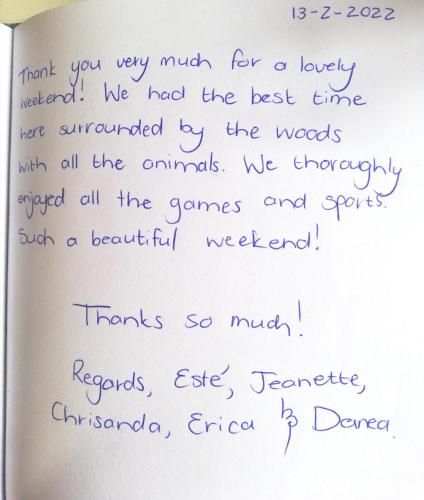 13-2-2022
Thank you very much for a lovely
weekend! We had the best time
here surrounded by the woods
with all the animals. We thoroughly
enjoyed all the games and sports.
Such a beautiful weekend!
Thanks so much!
Regards, Esté, Jeanette,
Chrisanda, Erica & Danea.